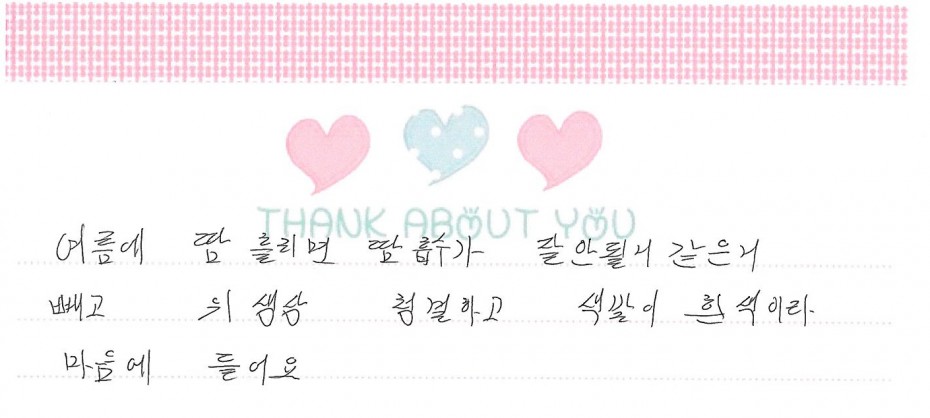 THANK ABOUT YOU
여름에 땀 흘리면 땀 흡수가 잘 안될거 같은거
빼고 위생상 청결하고 색깔이 흰색이라
마음에 들어요